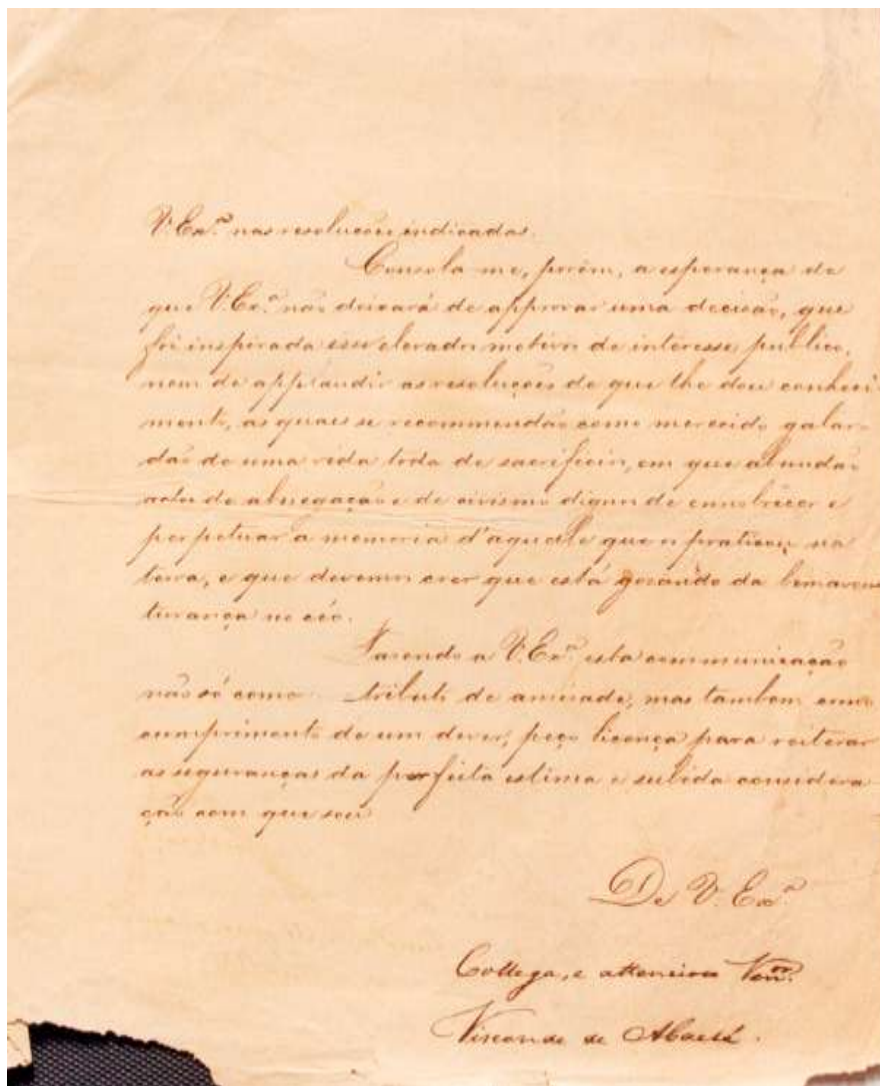 V. Exª. nas resoluções indicadas.
Consola-me, porém, a esperança de
que V. Exª. não deixará de approvar uma decisão, que
foi inspirada elevados motivos de interesse publico,
nem de applaudir as resoluções de que lhe dou conheci-
mento, as quaes se recommendão como merecido galar-
dão de uma vida toda de sacrificios, em que abundão
actos de abnegação e de civismo dignos de ennobrecer e
perpetuar a memoria d'aquele que os praticou na
terra, e que devemos crer que está gozando da bemaven-
turança no céo.
Fazendo a V. Exª. esta communicação
não só como tributo de amizade, mas tambem como
cumprimento de um dever, peço licença para reiterar
as seguranças da perfeita estima e subida considera-
ção com que sou
De V. Exª.
Collega, e attencioso Venᵒʳ.
Visconde de Abaeté.